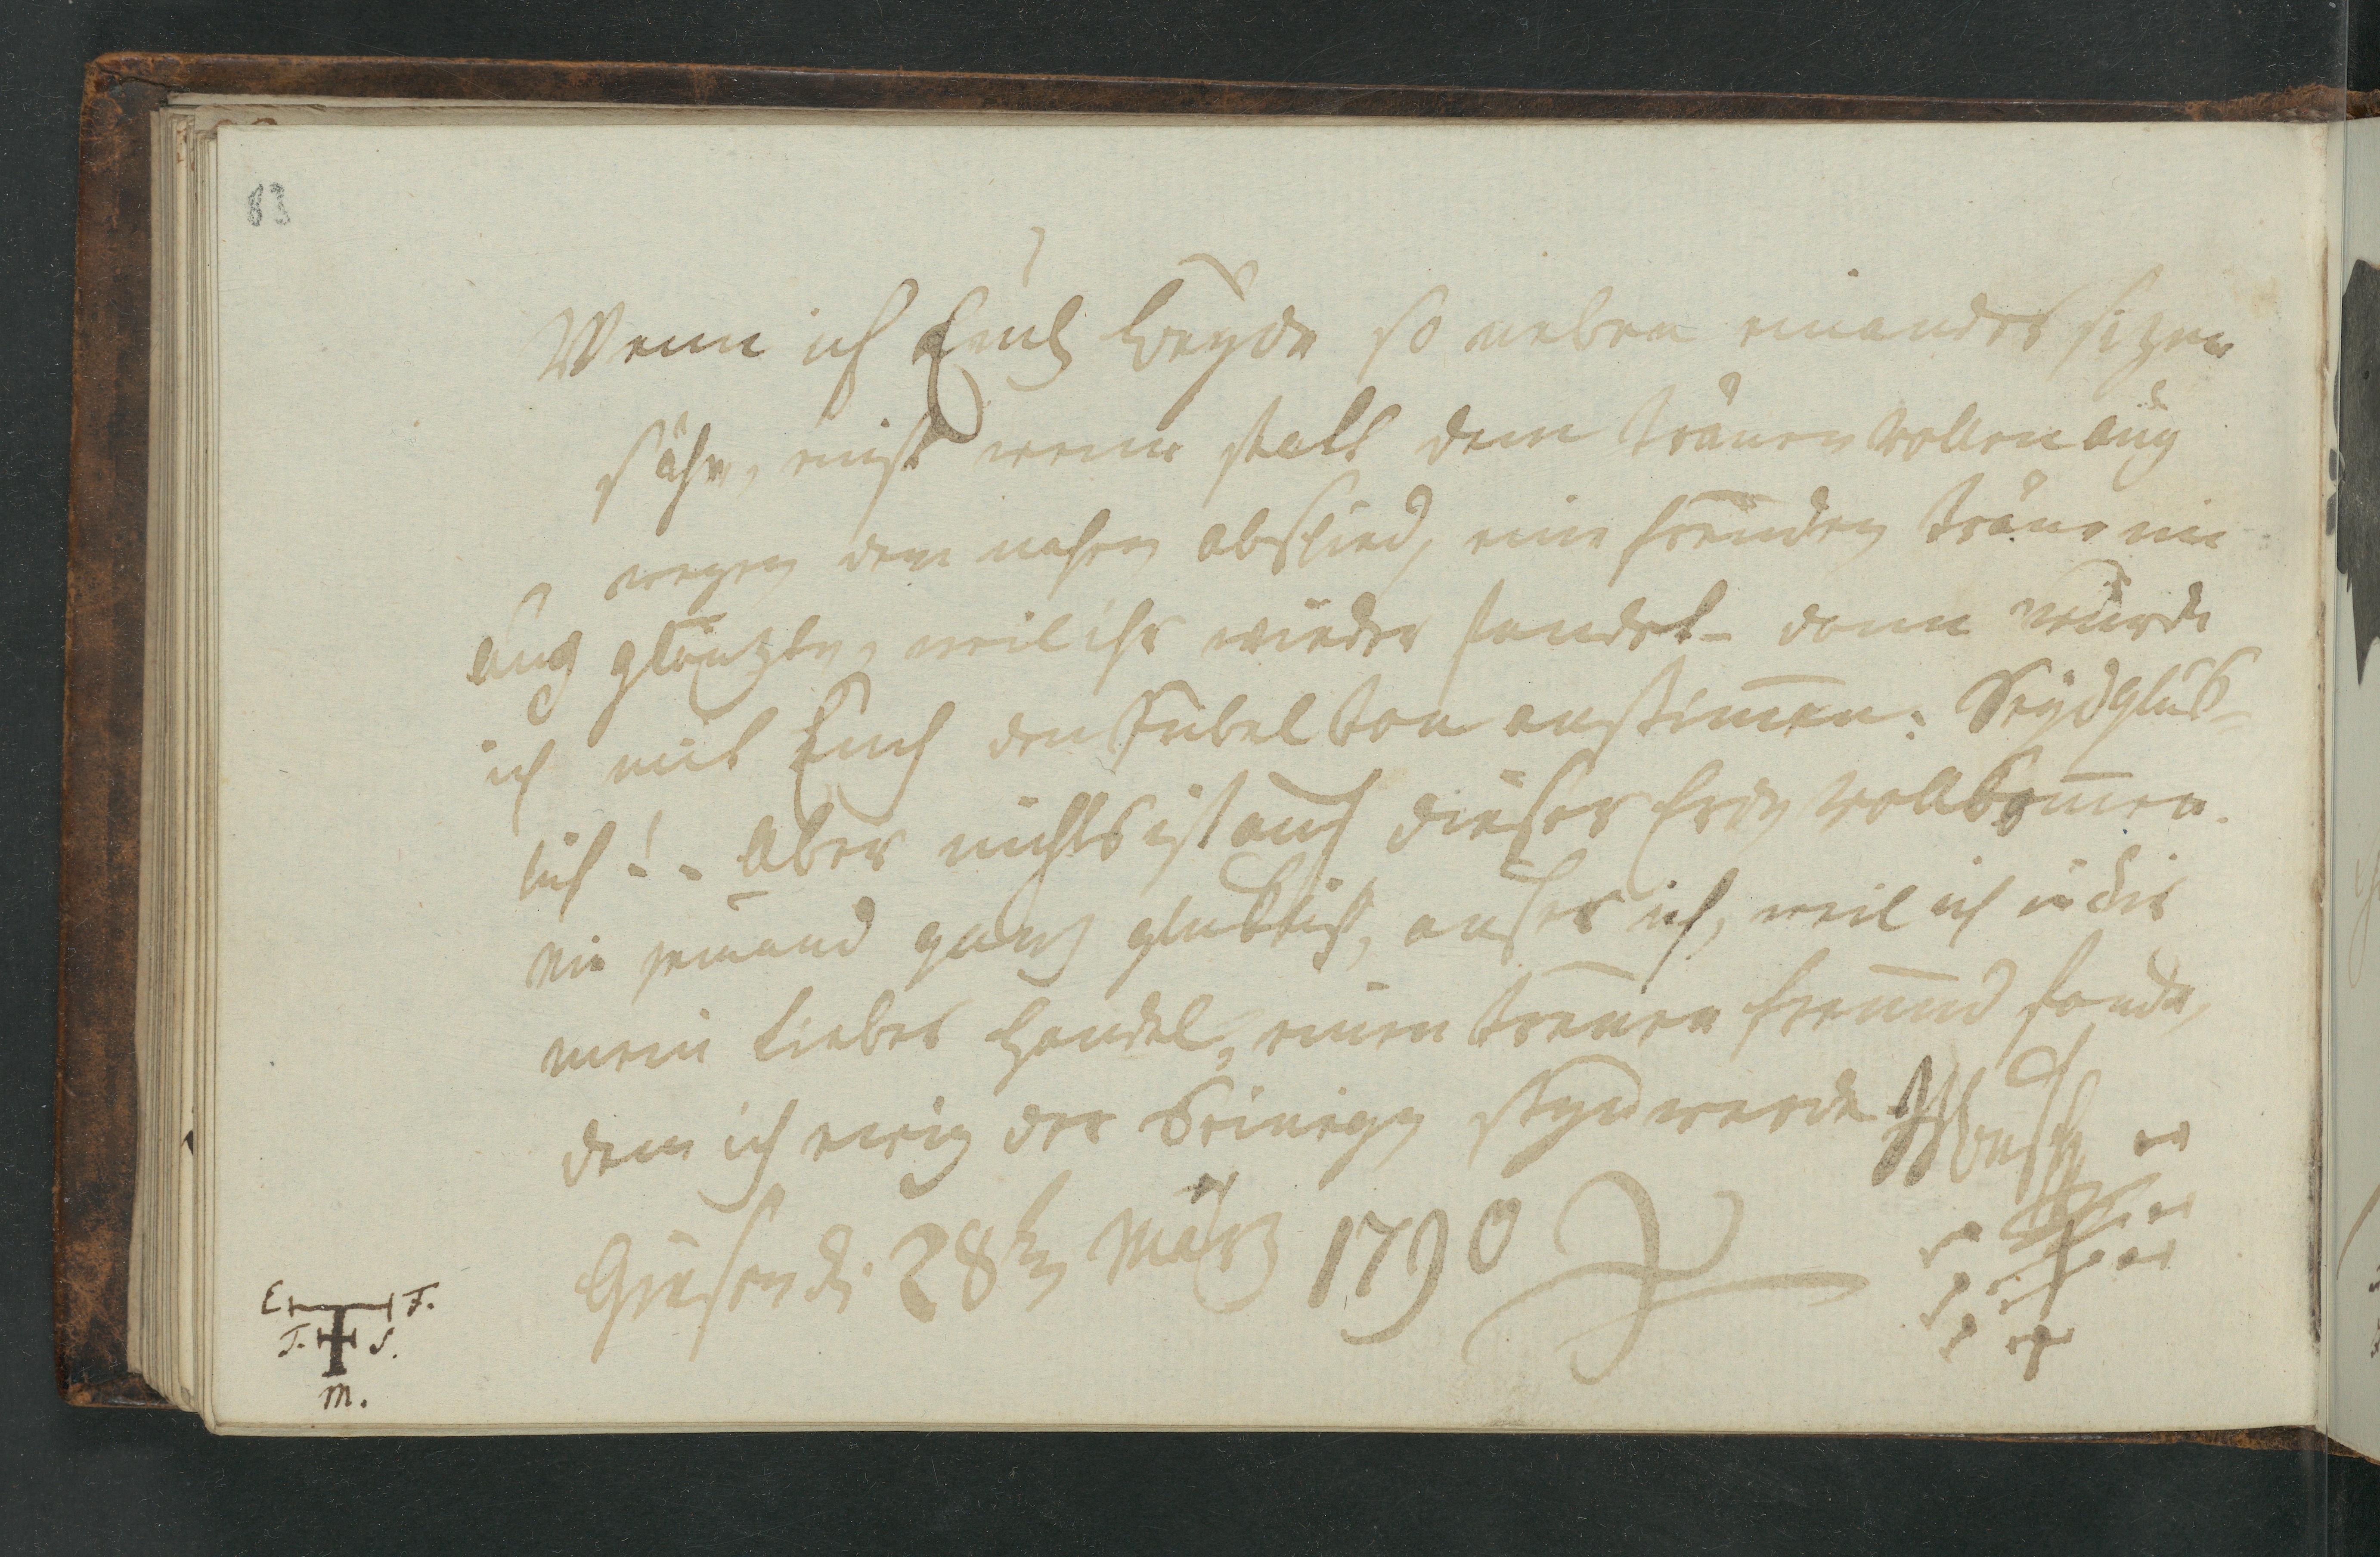 83
Wenn ich Euch beyde so neben einander sizen
sähe, einst wenn statt dem tränenvollen Aug
wegen dem nahen Abschied, eine freuden träne im
Aug glänzte, weil ihr wieder fandet - dann würde
ich mit Euch den Jubelton anstimmen: Seyd glük-
lich! - Aber nichts ist auf dieser Erde vollkommen.
nie jemand ganz glüklich, auser ich, weil ich in dir
mein lieber Handel, einen treuen Freund fande,
dem ich ewig der Seinige seyn werde
Giesen d. 28ten März 1790
E. F.
T. S.
M.